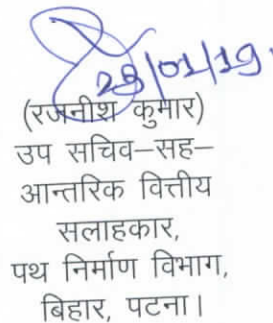 28/01/19
(रजनीश कुमार)
उप सचिव–सह–
आन्तरिक वित्तीय
सलाहकार,
पथ निर्माण विभाग,
बिहार, पटना।